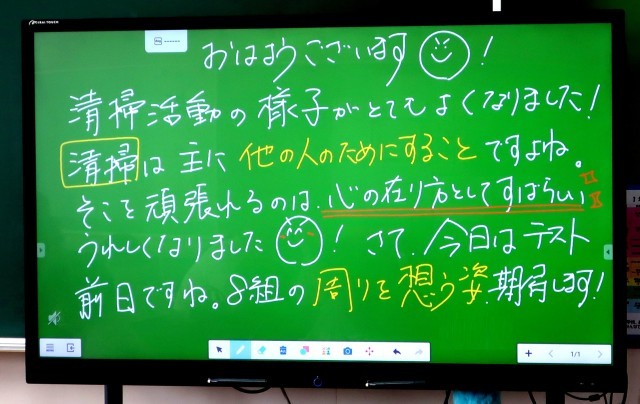 おはようございます!
清掃活動の様子がとてもよくなりました!
清掃は主に他の人のためにすることですよね。
そこを頑張れるのは、心の在り方としてすばらしい!!
うれしくなりました! さて、今日はテスト
前日ですね。8組の周りを想う姿、期待します!
1/1